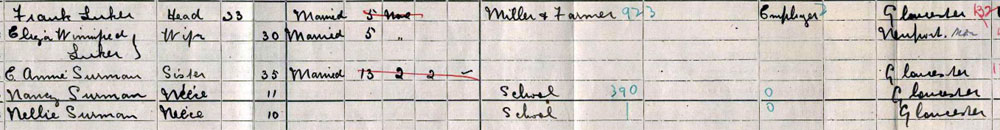 Frank Luker Head 33 Married 5 None Miller & Farmer 923 Employer Gloucester 132
Eliza Winnifred Wife 30 Married 5 " Newport. Mon
Luker
E Annie Surman Sister 35 Married 13 2 2 – Gloucester
Nancy Surman Neice 11 School 390 0 Gloucester
Nellie Surman Neice 10 School 1 0 Gloucester